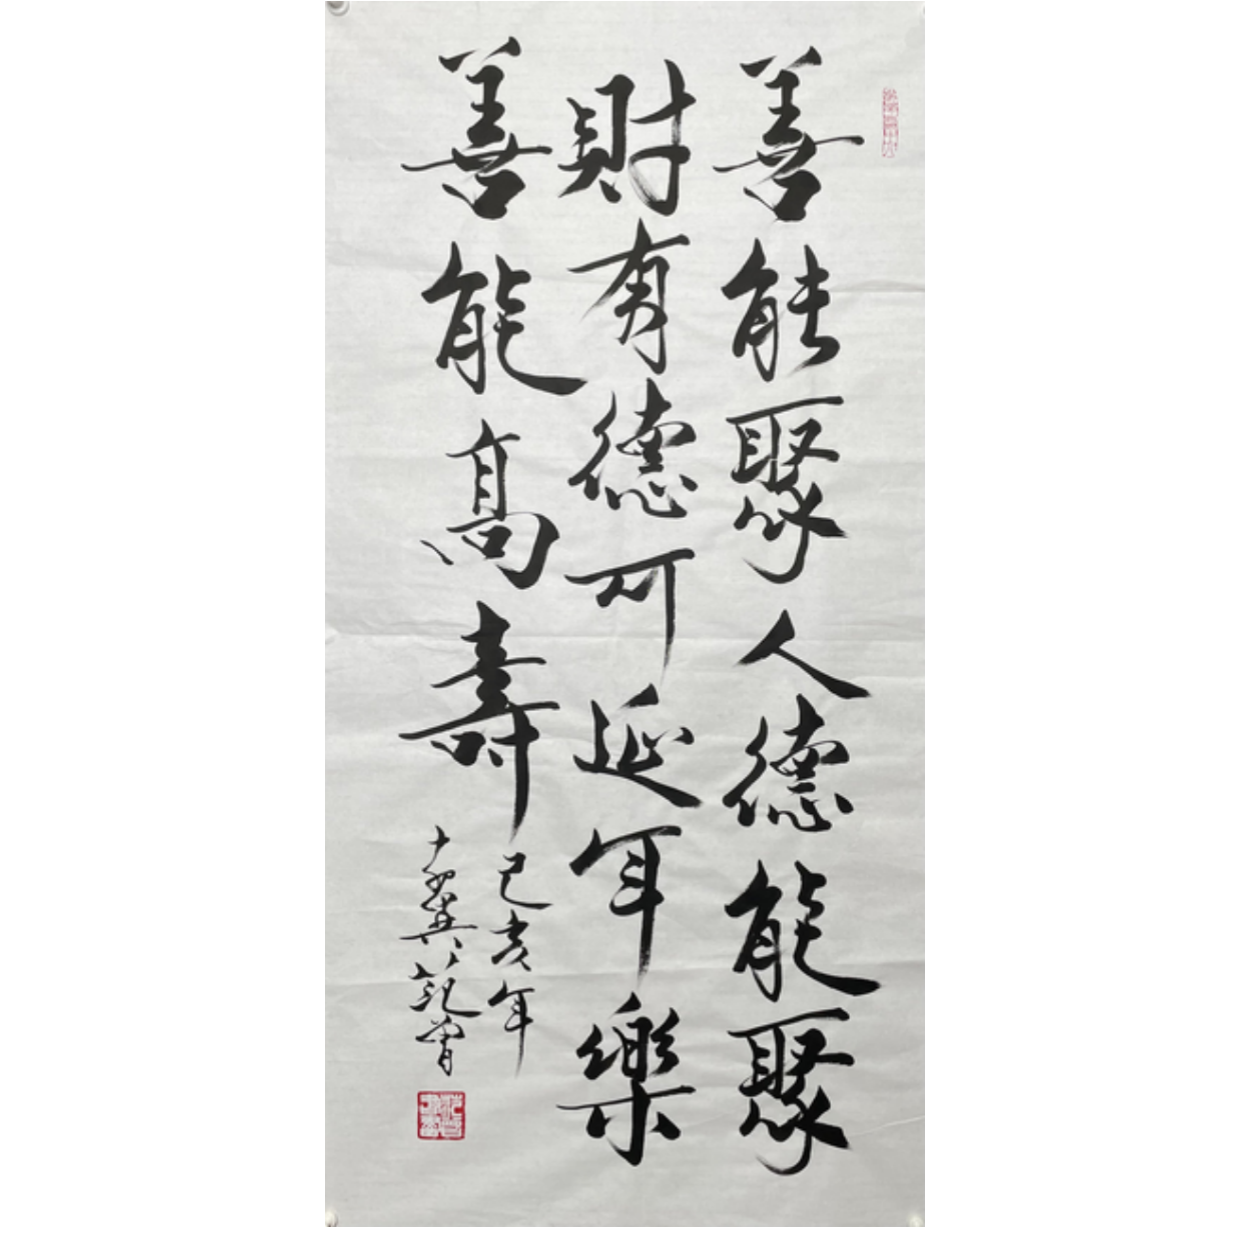 善能聚人德能聚
財有德可延年樂
善能高壽
己亥年
十翼范曾